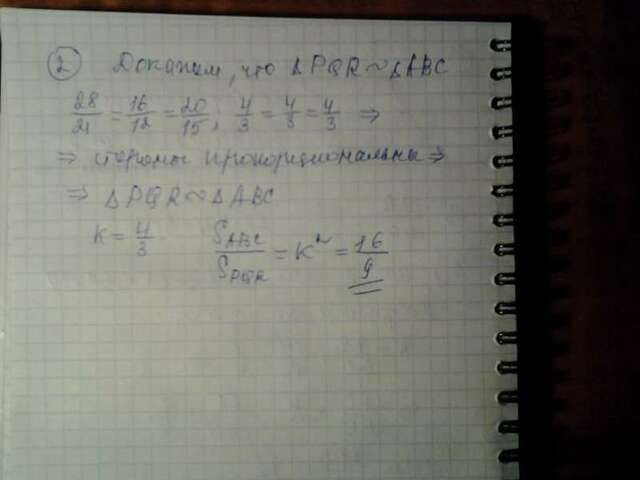 2 Докажем, что ΔPQR ~ ΔABC
28/21 = 16/12 = 20/15; 4/3 = 4/3 = 4/3 ⇒
⇒ стороны пропорциональны ⇒
⇒ ΔPQR ~ ΔABC
K = 4/3 S_ABC/S_PQR = K² = 16/9